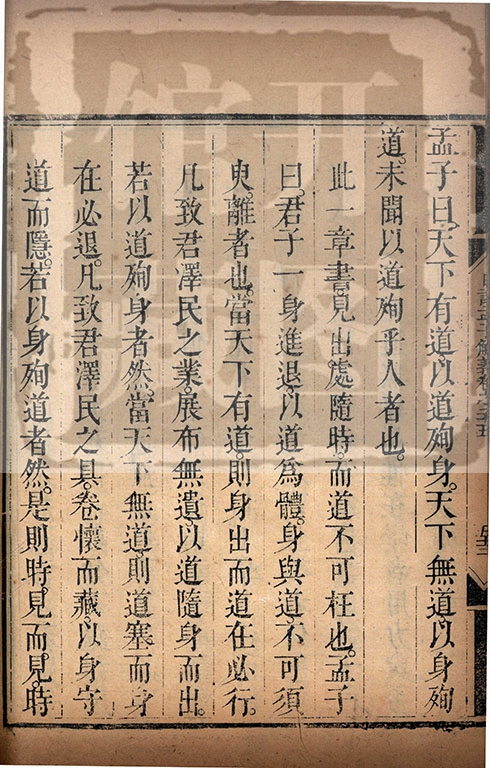 孟子曰。天下有道。以道殉身。天下無道。以身殉
道。未聞以道殉乎人者也。
此一章書。見出處隨時。而道不可枉也。孟子
曰。君子一身進退。以道為體。身與道。不可須
臾離者也。當天下有道。則身出而道在必行。
凡致君澤民之業。展布無遺。以道隨身而出。
若以道殉身者然。當天下無道。則道塞而身
在必退。凡致君澤民之具。卷懷而藏。以身守
道而隱。若以身殉道者然。是則時見而見。時